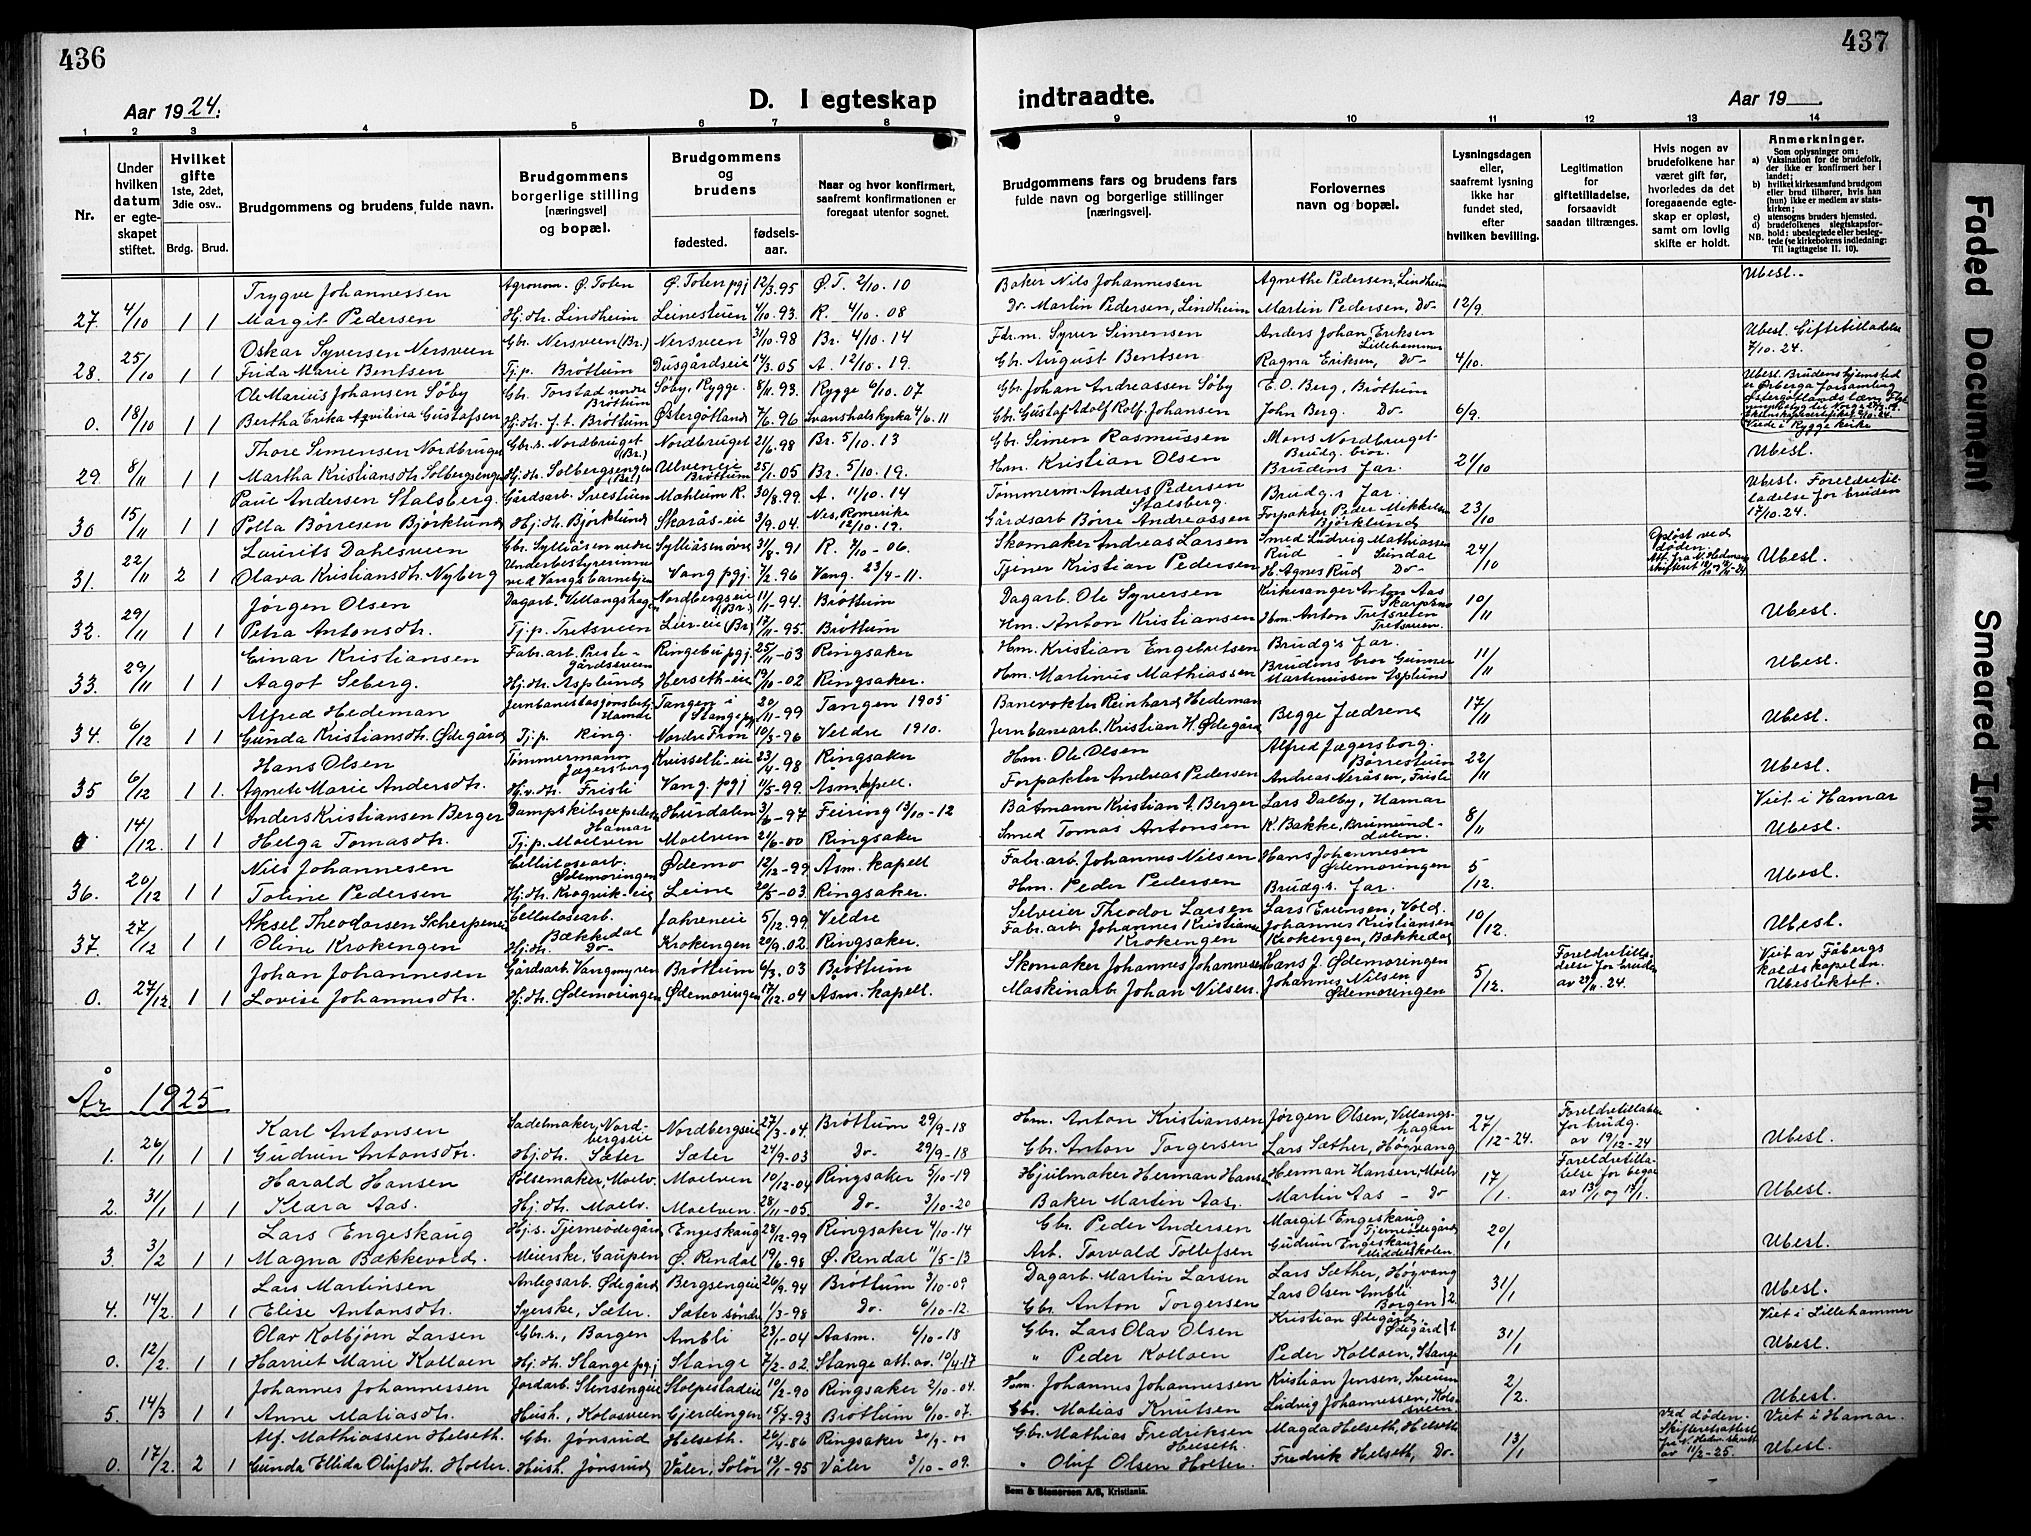 436
437
Aar 1924.
D. I egteskap
indtraadte.
Aar 19
1 2 3 4 5 6 7 8 9 10 11 12 13 14
Nr.
Under hvilken datum er egteskapet stiftet.
Hvilket gifte 1ste, 2det, 3die osv..
Brdg. Brud.
Brudgommens og brudens fulde navn.
Brudgommens borgerlige stilling [næringsvei] og bopæl.
Brudgommens og brudens
fødested. fødselsaar.
Naar og hvor konfirmert, saafremt konfirmationen er foregaat utenfor sognet.
Brudgommens fars og brudens fars fulde navn og borgerlige stillinger [næringsvei].
Forlovernes navn og bopæl.
Lysningsdagen eller, saafremt lysning ikke har fundet sted, efter hvilken bevilling.
Legitimation for giftetilladelse, forsaavidt saadan tiltrænges.
Hvis nogen av brudefolkene har været gift før, hvorledes da det foregaaende egteskap er opløst, samt om lovlig skifte er holdt.
Anmerkninger.
Som oplysninger om:
a) Vaksination for de brudefolk, der ikke er konfirmert her i landet;
b) hvilket kirkesamfund brudgom eller brud tilhører, hvis han (hun) ikke er medlem av statskirken;
c) utensogns bruders hjemsted.
d) brudefolkenes slegtskapsforhold: ubeslegtede eller beslegtede (se kirkebokens indledning: Til iagttagelse II. 10).
NB.
Trygve Johannessen Agronom. Ø. Toten Ø. Toten pgj 12/3.95 Ø.T. 2/10. 10 Baker Nils Johannessen Agnethe Pedersen, Lindheim Ubesl.
27. 4/10 1 1 Margit Pedersen Hj. dtr. Lindheim Leinestuen 4/10.93. R. 4/10-08 Do. Martin Pedersen, Lindheim Martin Pedersen, Do- 12/9
Oskar Syversen Nersveen Gbr. Nersveen (Br.) Nersveen 31/10-98 Br. 4/10. 14 Fdr.m. Syver Simensen Anders Johan Eriksen Lillehammer Ubesl. Giftetilladelse 7/10. 24.
28. 25/10 1 1 Frida Marie Bentsen Tj.p. Brøttum Dusgårdseie 14/3.05 A. 12/10. 19. Gbr. August Bentsen Ragna Eriksen, Do- 4/10.
Ole Marius Johansen Søby Gbr. Torstad nedre Brøttum Søby, Rygge. 8/11.93. Rygge 6/10. 07 Gbr. Johan Andreassen Søby E. O. Berg, Brøttum Ubesl. Brudens hjemsted er Ørberga forsamling Østergøtlands læn.
0. 18/10 1 1 Bertha Erika Aqvilina Gustafsen Hj. dtr. f.t. Brøttum Østergøtland 7/6. 96 Svanshals kyrka 4/6. 11 Gbr. Gustaf Adolf Rolf. Johansen John Berg. Do- 6/9. Viede i Rygge kirke
Thore Simensen Nordbruget Gbr.s. Nordbruget (Br.) Nordbruget 21/6.98 Br. 5/10. 13 Gbr. Simen Rasmussen Mons Nordbruget Brudg. bror. Ubesl.
29. 8/11 1 1 Martha Kristiansdtr. Solbergsengen Hj. dtr. Solbergsengen (Br.) Ulveneie Brøttum 25/1.05 Br. 5/10. 19. Hm. Kristian Olsen Brudens far. 21/10
Paul Andersen Stalsberg. Gårdsarb. Svestuen Mæhlum R. 30/8.99. A. 11/10. 14 Tømmerm. Anders Pedersen Stalsberg. Brudg.s far. Ubesl. Foreldretilladelse for bruden 17/10. 24.
30 15/11 1 1 Polla Børresen Bjørklund Hj. dtr. Bjørklund Skarås-eie 3/9. 04. Nes, Romerike 12/10. 19. Gårdsarb Børre Andreassen Forpakter Peder Mikkelsen Bjørklund 23/10
Laurits Dahlsveen Gbr. Sylliåsen nedre Sylliåsen øvre 31/8.91 R. 7/10-06. Skomaker Andreas Larsen Smed Ludvig Mathiassen Rud - Lindal Opløst ved døden.
31. 22/11 2 1 Olava Kristiansdtr. Nyberg Underbestyrerinne ved Vangs barnehjem Vang pgj. 7/2.96 Vang. 23/4-11. Tjener Kristian Pedersen H. Agnes Rud Do- 24/10 Ubesl.
Jørgen Olsen Dagarb. Vellangshagen Nordbergseie (Br.) 11/1-94. Brøttum Dagarb. Ole Syversen Kirkesanger Anton Aas Ubesl.
32. 29/11 1 1 Petra Antonsdtr. Tj.p. Tretsveen Lier-eie (Br) 17/11-95. Brøttum Hm. Anton Kristiansen Hm. Anton Tretsveen Tretsveen. 10/11
Einar Kristiansen Fabr.arb. Prestegårdsveen Ringebu pgj. 25/11-03 Ringsaker Hm. Kristian Engebretsen Brudg's far.
33. 29/11 1 1 Aagot Seberg. Hj. dtr. Asplund Herseth-eie 19/10-02 Ringsaker. Hm. Martinus Mathiassen Brudens bror Gunnar Martinussen Asplund 11/11 Ubesl.
Alfred Hedeman Jernbanestasjonsbetj. Hamar Tangen i Stange pgj 20/11-99 Tangen 1905 Banevokter Reinhard Hedeman
34. 6/12 1 1 Gunda Kristiansdtr. Ødegård Tj.p. Ring. Nordre Fron 10/3-96 Veldre 1910. Jernbanearb. Kristian H. Ødegård Begge fædrene 17/11 Ubesl.
Hans Olsen Tømmermann Jægersberg Krisselli-eie 23/4-98 Ringsaker Hm. Ole Olsen Alfred Jægersborg. Børrestuen
35 6/12 1 1. Agnete Marie Andersdtr. Hj.v.dtr. Fristi Vang. pgj 1/5-99. Åsm. kapell. Forpakter Andreas Pedersen Andreas Neråsen, Fristi 22/11 Ubesl.
Anders Kristiansen Berger Dampskibsexpeditør Hamar Hurdalen 3/6-97 Feiring 13/10-12 Båtmann Kristian A. Berger Lars Dalby, Hamar Viet i Hamar
0 14/12. 1 1 Helga Tomasdtr. Tj.p. Moelven Moelven 21/6-00 Ringsaker Smed Tomas Antonsen K. Bakke, Brumunddalen. 8/11 Ubesl.
Nils Johannesen Cellulosearb. Ødemoringen Ødemo 12/12-99 Åsm. kapell Fabr.arb. Johannes Nilsen Hans Johannesen Ødemoringen
36. 20/12 1 1 Toline Pedersen Hj. dtr. Krogvik-eie Leine 20/5-03 Ringsaker. Hm. Peder Pedersen Brudg.s far. 5/12. Ubesl.
Aksel Theodorsen Scherpeneie Cellulosearb. Bækkedal Jahreneie 5/12.99 Veldre Selveier Theodor Larsen Lars Evensen, Vold.
37. 27/12 1 1 Oline Krokengen Hj. dtr. Do- Krokengen 20/9.02. Ringsaker. Fabr.arb Johannes Kristiansen Krokengen Johannes Kristiansen Krokengen, Bækkedal 10/12. Ubesl.
Johan Johannesen Gårdsarb. Vangmyren Brøttum 6/3.03 Brøttum Skomaker Johannes Johannesen Hans J. Ødemoringen Foreldretilladelse for bruden av 29/11. 24. Viet av Fåbergs
0. 27/12. 1 1 Lovise Johannesdtr. Hj. dtr. Ødemoringen Ødemoringen 17/12.04 Åsm. kapell. Maskinarb Johan Nilsen. Johannes Nilsen Ødemoringen 5/12. Ubeslektet.
År 1925
Karl Antonsen Sadelmaker, Nordbergseie Nordbergseie 27/3-04. Brøttum 29/9-18 Hm. Anton Kristiansen Jørgen Olsen, Vellangshagen Foreldretilladelse for brudg. av 19/12-24
1. 26/1 1 1 Gudrun Antonsdtr. Hj. dtr. Sæter Sæter 24/9-03 Do- 29/9-18 Gbr. Anton Torgersen Lars Sæther, Høgvang 27/12-24. Ubesl.
Harald Hansen Pølsemaker, Moelv. Moelven 10/12-04 Ringsaker 5/10-19 Hjulmaker Herman Hansen Herman Hansen, Moelv Foreldretilladelse for begge av 13/1 og 15/1.
2. 31/1 1 1 Klara Aas. Hj. dtr. Moelv. Moelven. 28/11-05. Do. 3/10-20 Baker Martin Aas. Martin Aas - Do 17/1. Ubesl.
Lars Engeskaug Hj.s. Tjerneødegård Engeskaug 28/12-99 Ringsaker 4/10-14 Gbr. Peder Andersen Margit Engeskaug Tjerneødegård
3. 3/2 1 1 Magna Bækkevold. Meierske, Gaupen Ø. Rendal 19/6-98 Ø. Rendal 11/5-13 Arb. Torvald Tollefsen Gudrun Engeskaug Middelskolen. 20/1 Ubesl.
Lars Martinsen Anlegsarb. Ødegård Bergsengeie 26/9-94 Brøttum 3/10-09 Dagarb. Martin Larsen Lars Sæther, Høgvang
4. 14/2. 1 1 Elise Antonsdtr. Syerske, Sæter. Sæter søndre 1/3-98 Do. 6/10-12. Gbr. Anton Torgersen Lars Olsen Ambli Borgen } 2. 31/1 Ubesl.
Olav Kolbjørn Larsen Gbr.s., Borgen Ambli 23/1-04 Aasm. 6/10-18 Gbr. Lars Olav Olsen Kristian Ødegård, Ødegård } 1. Viet i Lillehammer
0. 12/2. 1 1 Harriet Marie Kolloen Hj. dtr. Stange pgj Stange 7/2-02. Stange att. av. 10/4-17 " Peder Kolloen Peder Kolloen, Stange 31/1 Ubesl.
Johannes Johannessen Jordarb. Stensengeie Stolpestadeie 10/2-90 Ringsaker 2/10-04. Hm. Johannes Johannessen Kristian Jensen, Sveum
5. 14/3 1 1 Anne Matiasdtr. Hush., Kolosveen Gjerdingen 15/7-93 Brøttum 6/10-07. Gbr. Matias Knutsen Ludvig Johannessen, Kolosveen 2/2. Ubesl.
Alf. Mathiassen Helseth. Gbr. Jønsrud Helseth. 26/4-86 Ringsaker 30/9-00 Gbr. Mathias Fredriksen Helseth. Magda Helseth, Helseth Ved døden. Viet i Hamar.
0. 17/2. 2 1 Gunda Ellida Olufsdtr. Holter. Hush. Jønsrud Våler, Solør 13/1-95 Våler 3/10-09. " Oluf Olsen Holter. Fredrik Helseth, Do- 13/1 av 11/2-25. Ubesl.
Sem & Stenersen A/S, Kristiania.
Faded Document
Smeared Ink